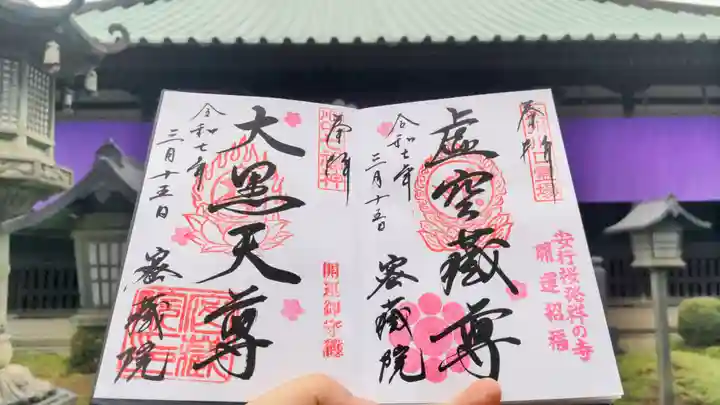 奉拝
虚空蔵尊
令和七年
三月十五日
密蔵院
安行桜発祥の寺
開運招福
奉拝
大黒天尊
開運御守護
令和七年
三月十五日
密蔵院